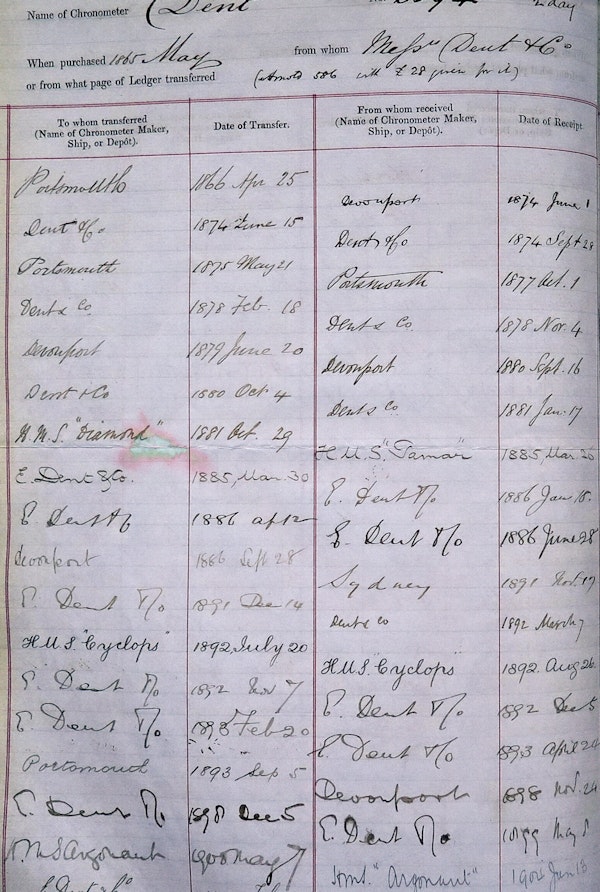 Name of Chronometer Dent No. 2 day
When purchased 1865 May from whom Messrs Dent & Co
or from what page of Ledger transferred (Arnold 586 with £28 given for it)
To whom transferred (Name of Chronometer Maker, Ship, or Depôt). Date of Transfer. From whom received (Name of Chronometer Maker, Ship, or Depôt). Date of Receipt.
Portsmouth 1866 Apr 25 Devonport 1874 June 1
Dent & Co 1874 June 15 Dent & Co 1874 Sept 28
Portsmouth 1875 May 21 Portsmouth 1877 Oct. 1
Dent & Co 1878 Feb. 18 Dent & Co 1878 Nov. 4
Devonport 1879 June 20 Devonport 1880 Sept. 16
Dent & Co 1880 Oct 4 Dent & Co 1881 Jan. 17
H.M.S. "Diamond" 1881 Oct. 29 H.M.S. "Tamar" 1885 Mar. 26
E. Dent & Co. 1885, Mar. 30 E. Dent & Co 1886 Jan. 18.
E. Dent & Co 1886 Ap 12 E. Dent & Co 1886 June 28
Devonport 1886 Sept 28 Sydney 1891 Nov. 19
E. Dent & Co 1891 Dec 14 Dent & Co 1892 March 7
HMS "Cyclops" 1892 July 20 HMS "Cyclops" 1892. Aug 26.
E. Dent & Co 1892 Nov 7 E. Dent & Co 1892 Dec 5
E. Dent & Co 1893 Feb 20 E. Dent & Co 1893 April 24
Portsmouth 1893 Sep 5 Devonport 1898 Nov. 24
E. Dent & Co 1898 Dec 5 E. Dent & Co 1899 May 8
H.M.S Argonaut 1900 May 7 H.M.S. "Argonaut" 1904 Jun 18
E. Dent & Co